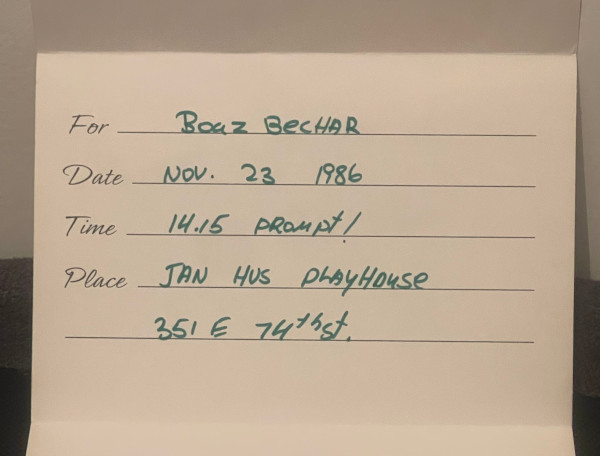 For Boaz BecHAR
Date Nov. 23 1986
Time 14.15 PROMPt!
Place JAN HUS PLAYHOUSE
351 E 74th St.